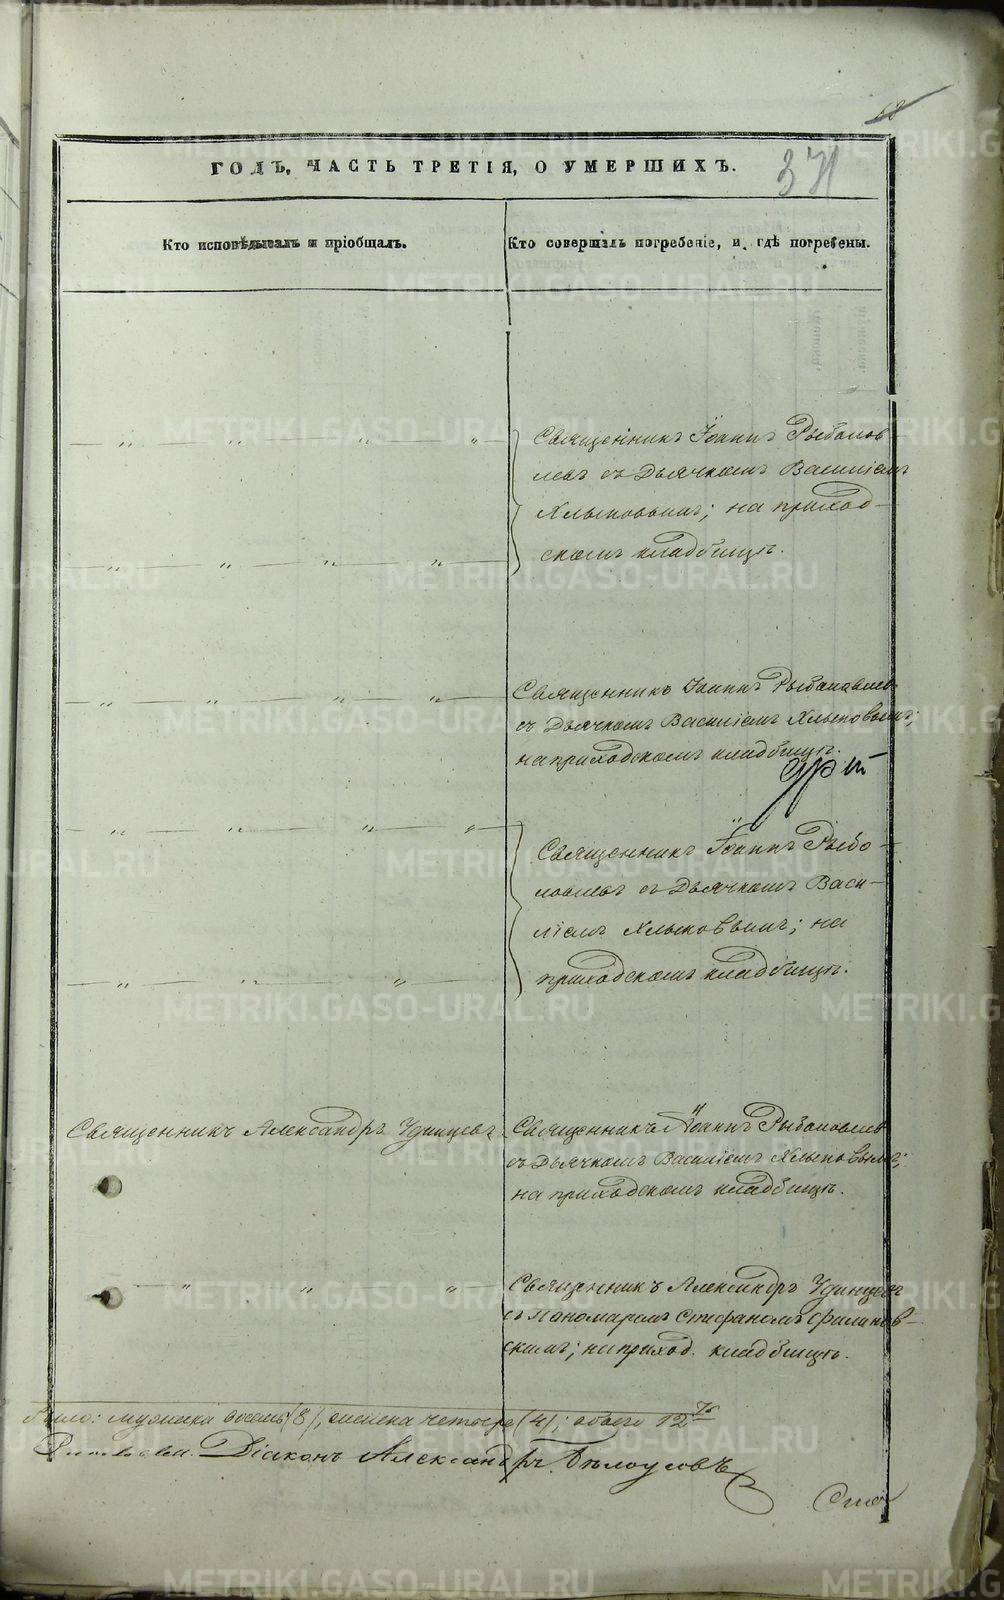 68
ГОДЪ, ЧАСТЬ ТРЕТІЯ, О УМЕРШИХЪ.
371
Кто исповѣдывалъ и пріобщалъ.
Кто совершалъ погребеніе, и гдѣ погребены.
Священникъ Іоаннъ Рыболов-
левъ съ Дьячкомъ Василіемъ
Хлыновымъ; на приход-
скомъ кладбищѣ.
Священникъ Іоаннъ Рыболовлев
съ Дьячкомъ Василіемъ Хлыновымъ;
на приходскомъ кладбищѣ.
Священникъ Іоаннъ Рыбо-
ловлевъ съ Дьячкомъ Васи-
ліемъ Хлыновымъ; на
приходскомъ кладбищѣ.
Священникъ Александръ Удинцевъ.
Священникъ Іоаннъ Рыболовлев
съ Дьячкомъ Василіемъ Хлыновымъ;
на приходскомъ кладбищѣ.
Священникъ Александръ Удинцевъ
съ Пономаремъ Стефаномъ Филинов-
скимъ; на приход. кладбищѣ.
мужеска восемь (8), женска четыре (4); обоего 12
Діаконъ Александръ Бѣлоусовъ
METRIKI.GASO-URAL.RU